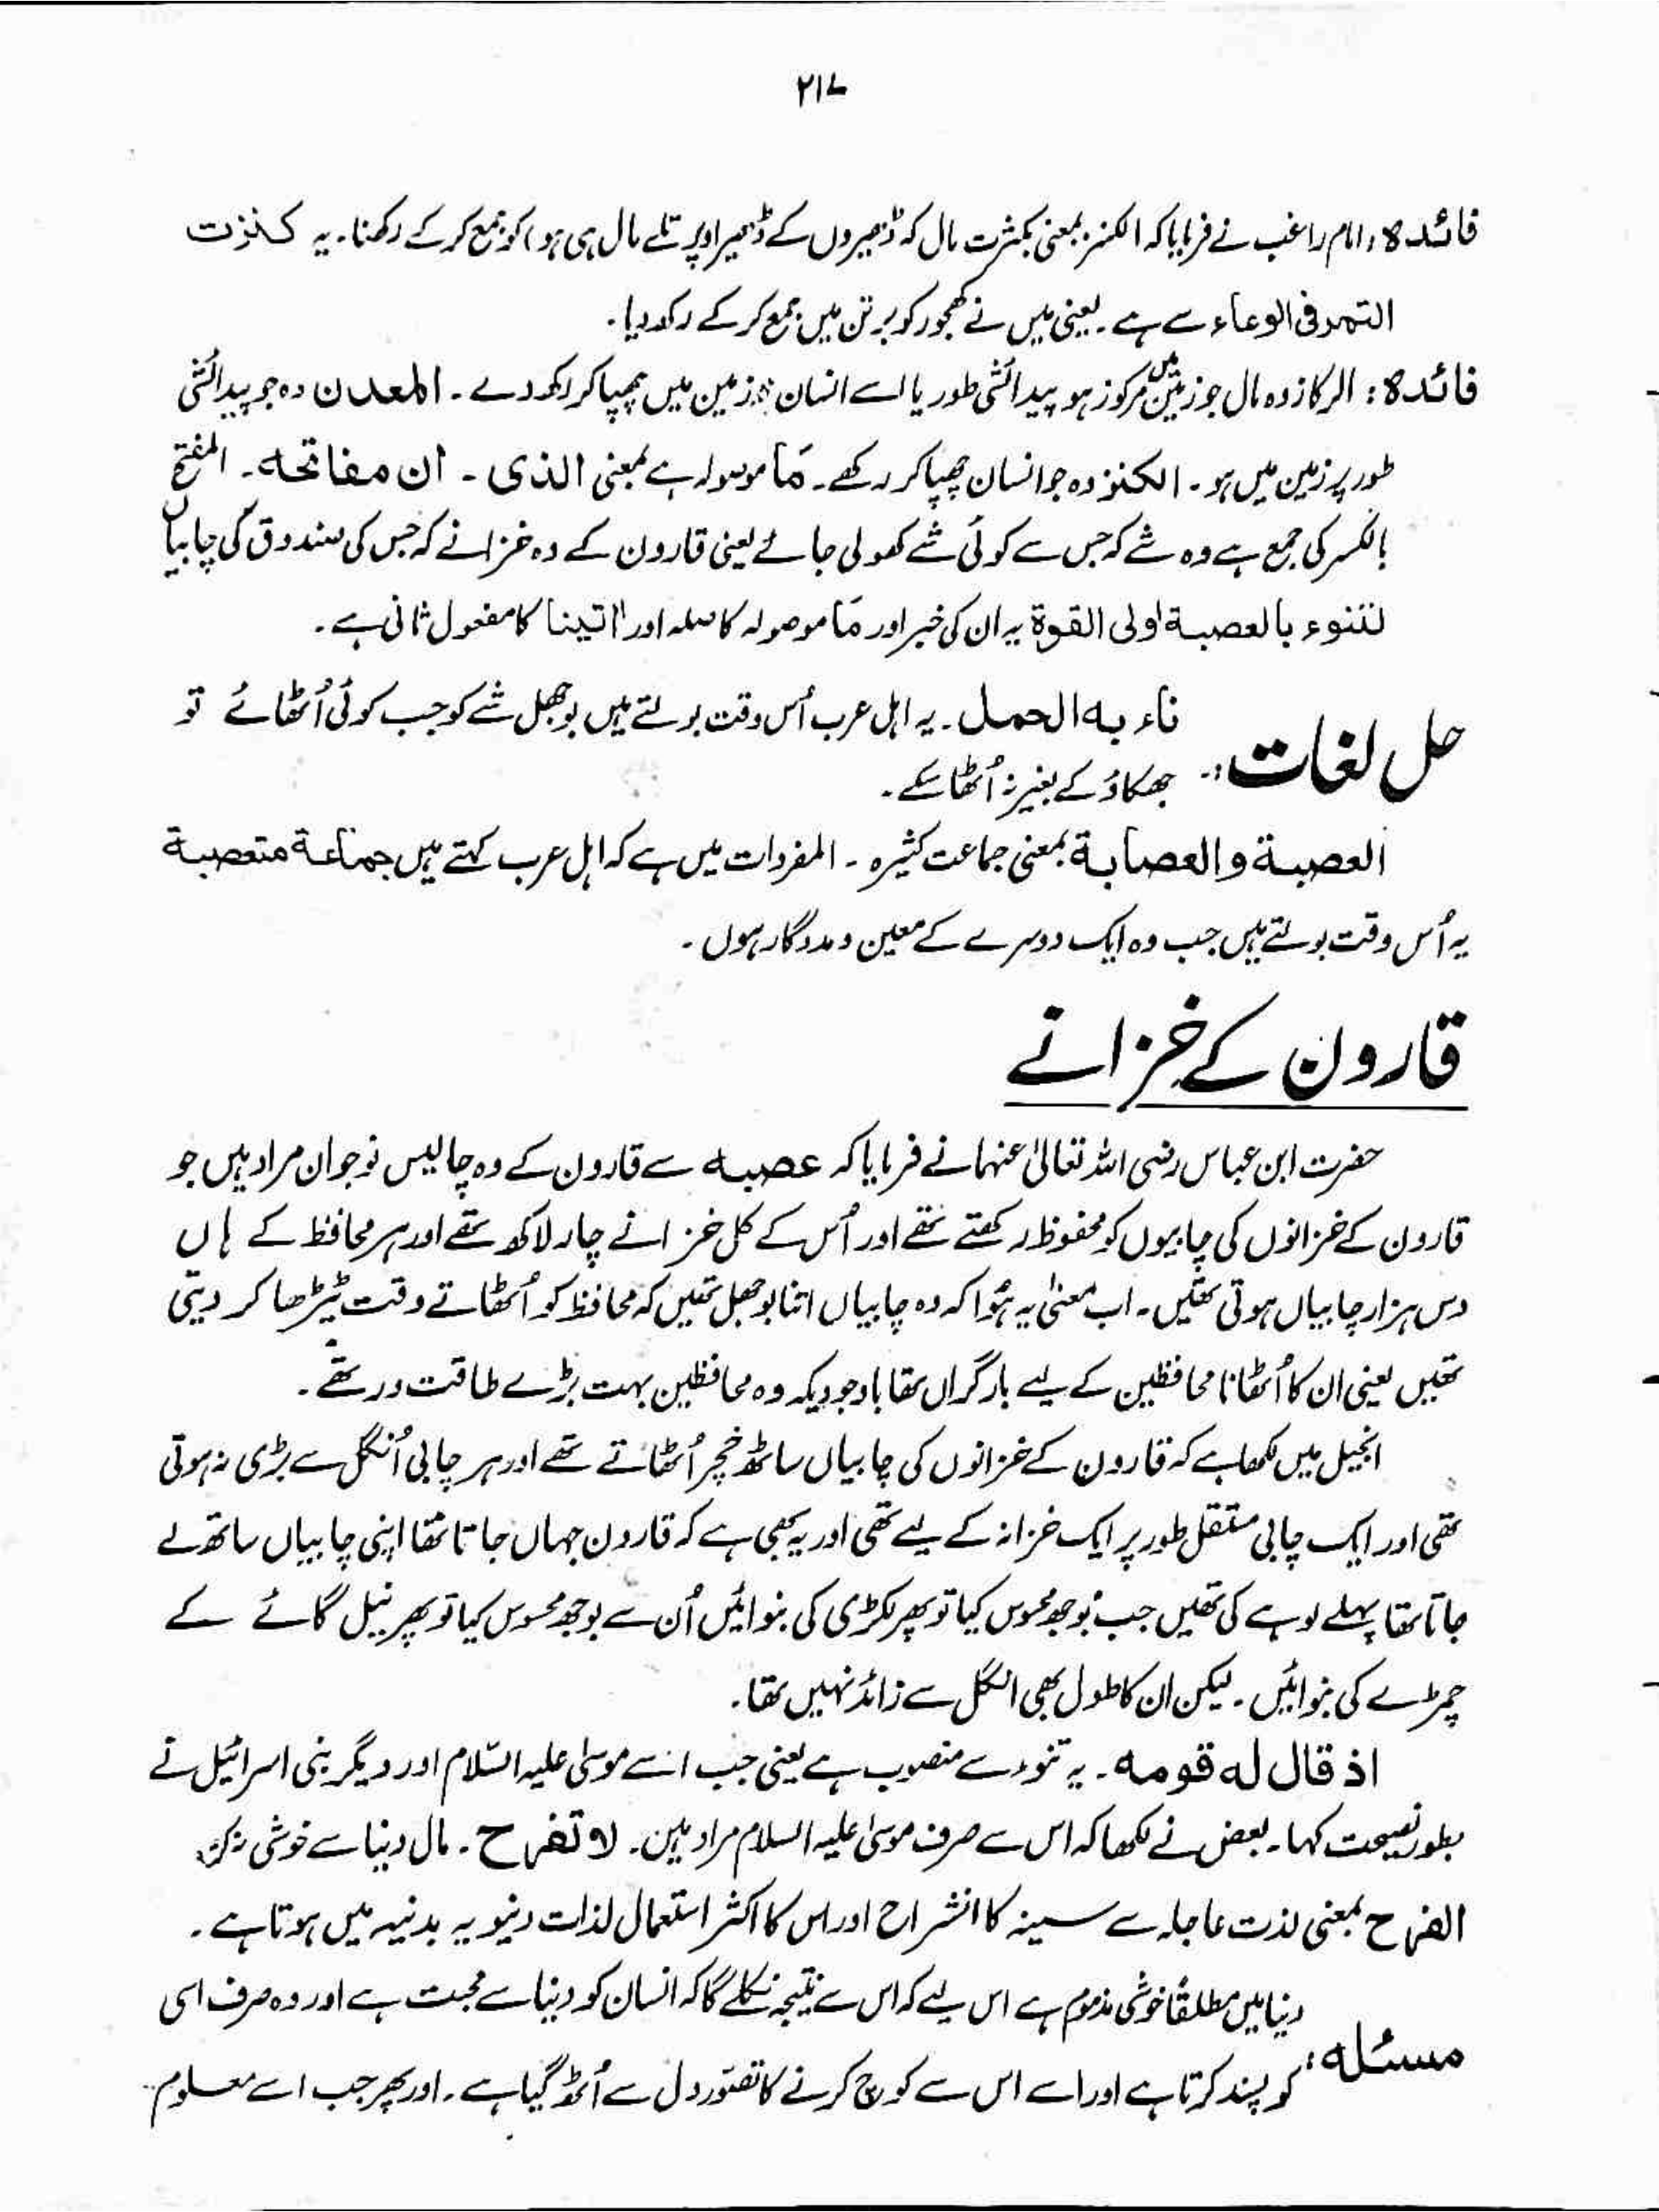 ۲۱۷
فائدہ: امام راغب نے فرمایا کہ الکنز بمعنی بکثرت مال کہ ڈھیروں کے ڈھیر اوپر تلے مال ہی ہو) کو جمع کر کے رکھنا۔ یہ کنزت
التمر فی الوعاء سے ہے۔ یعنی میں نے کھجور کو برتن میں جمع کر کے رکھ دیا۔
فائدہ: الرکاز وہ مال جو زمین میں مرکوز ہو پیدائشی طور یا اسے انسان زمین میں چھپا کر رکھ دے۔ المعدن وہ جو پیدائشی
طور پر زمین میں ہو۔ الکنز وہ جو انسان چھپا کر رکھے۔ مَا موصولہ ہے بمعنی الذی۔ ان مفاتحہ۔ المفتح
بالکسر کی جمع ہے وہ شے کہ جس سے کوئی شے کھولی جائے یعنی قارون کے وہ خزانے کہ جس کی صندوق کی چابیاں
لتنوء بالعصبۃ اولی القوۃ یہ ان کی خبر اور مَا موصولہ کا صلہ اور اٰتینا کا مفعول ثانی ہے۔
حل لغات:۔ ناء بہ الحمل۔ یہ اہل عرب اُس وقت بولتے ہیں بوجھل شے کو جب کوئی اُٹھائے تو
جھکاؤ کے بغیر نہ اُٹھا سکے۔
العصبۃ والعصابۃ بمعنی جماعت کثیرہ۔ المفردات میں ہے کہ اہل عرب کہتے ہیں جماعۃ متعصبۃ
یہ اُس وقت بولتے ہیں جب وہ ایک دوسرے کے معین و مددگار ہوں۔
قارون کے خزانے
حضرت ابن عباس رضی اللہ تعالیٰ عنہما نے فرمایا کہ عصبہ سے قارون کے وہ چالیس نوجوان مراد ہیں جو
قارون کے خزانوں کی چابیوں کو محفوظ رکھتے تھے اور اُس کے کل خزانے چار لاکھ تھے اور ہر محافظ کے ہاں
دس ہزار چابیاں ہوتی تھیں۔ اب معنیٰ یہ ہُوا کہ وہ چابیاں اتنا بوجھل تھیں کہ محافظ کو اُٹھاتے وقت ٹیڑھا کر دیتی
تھیں یعنی ان کا اُٹھانا محافظین کے لیے بارگراں تھا باوجودیکہ وہ محافظین بہت بڑے طاقت ور تھے۔
انجیل میں لکھا ہے کہ قارون کے خزانوں کی چابیاں ساٹھ خچر اُٹھاتے تھے اور ہر چابی اُنگل سے بڑی نہ ہوتی
تھی اور ایک چابی مستقل طور پر ایک خزانہ کے لیے تھی اور یہ بھی ہے کہ قارون جہاں جاتا تھا اپنی چابیاں ساتھ لے
جاتا تھا پہلے لوہے کی تھیں جب بوجھ محسوس کیا تو پھر لکڑی کی بنوائیں اُن سے بوجھ محسوس کیا تو پھر نیل گائے کے
چمڑے کی بنوائیں۔ لیکن ان کا طول بھی انگل سے زائد نہیں تھا۔
اذ قال لہ قومہ۔ یہ تنوء سے منصوب ہے یعنی جب اسے موسیٰ علیہ السّلام اور دیگر بنی اسرائیل نے
بطور نصیحت کہا۔ بعض نے لکھا کہ اس سے صرف موسیٰ علیہ السلام مراد ہیں۔ لا تفرح۔ مال دنیا سے خوشی نہ کر
الفرح بمعنی لذت عاجلہ سے سینہ کا انشراح اور اس کا اکثر استعمال لذات دنیویہ بدنیہ میں ہوتا ہے۔
مسئلہ: دنیا میں مطلقًا خوشی مذموم ہے اس لیے کہ اس سے نتیجہ نکلے گا کہ انسان کو دنیا سے محبت ہے اور وہ صرف اسی
کو پسند کرتا ہے اور اسے اس سے کوچ کرنے کا تصوّر دل سے اُٹھ گیا ہے۔ اور پھر جب اسے معلوم